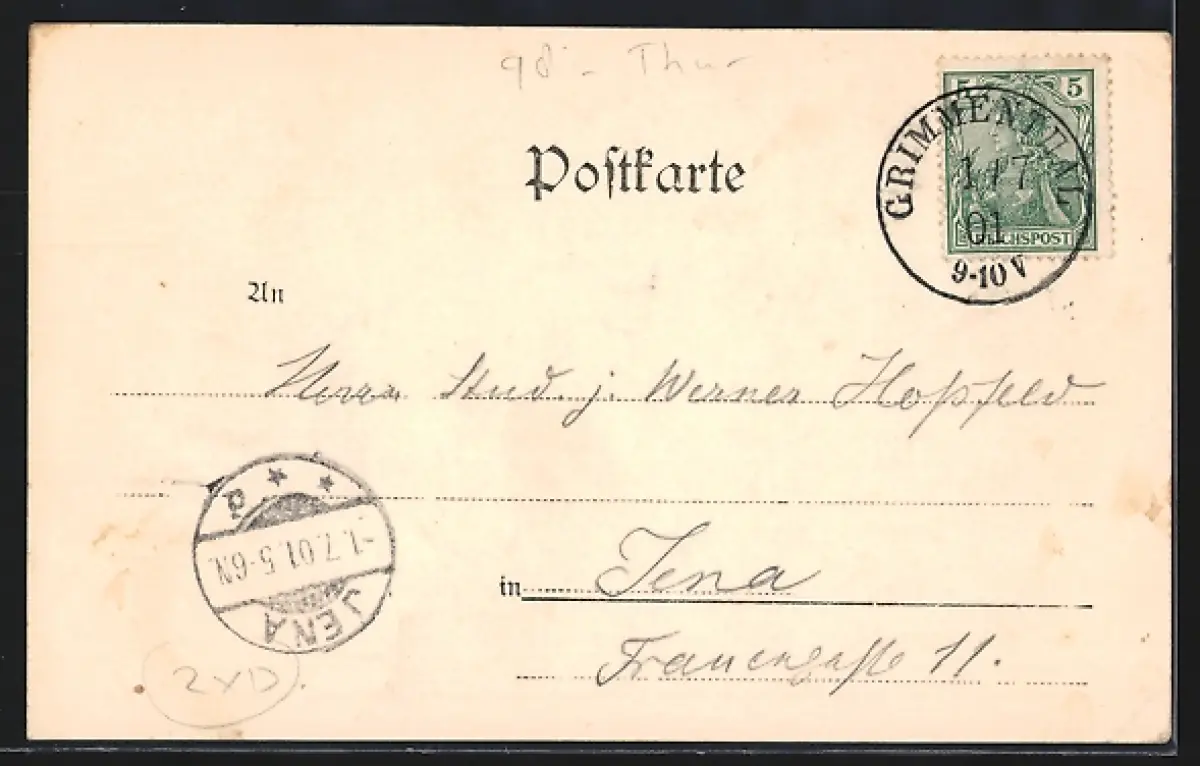 98 - Thur
5 5
GRIMMENTHAL
1 / 7
01
REICHSPOST
9-10 V
Poſtkarte
An
Herrn Stud. j. Werner Hoßfeld
* *
-1.7.01.5-6N.
JENA
in Jena
Frauengaſse 11.